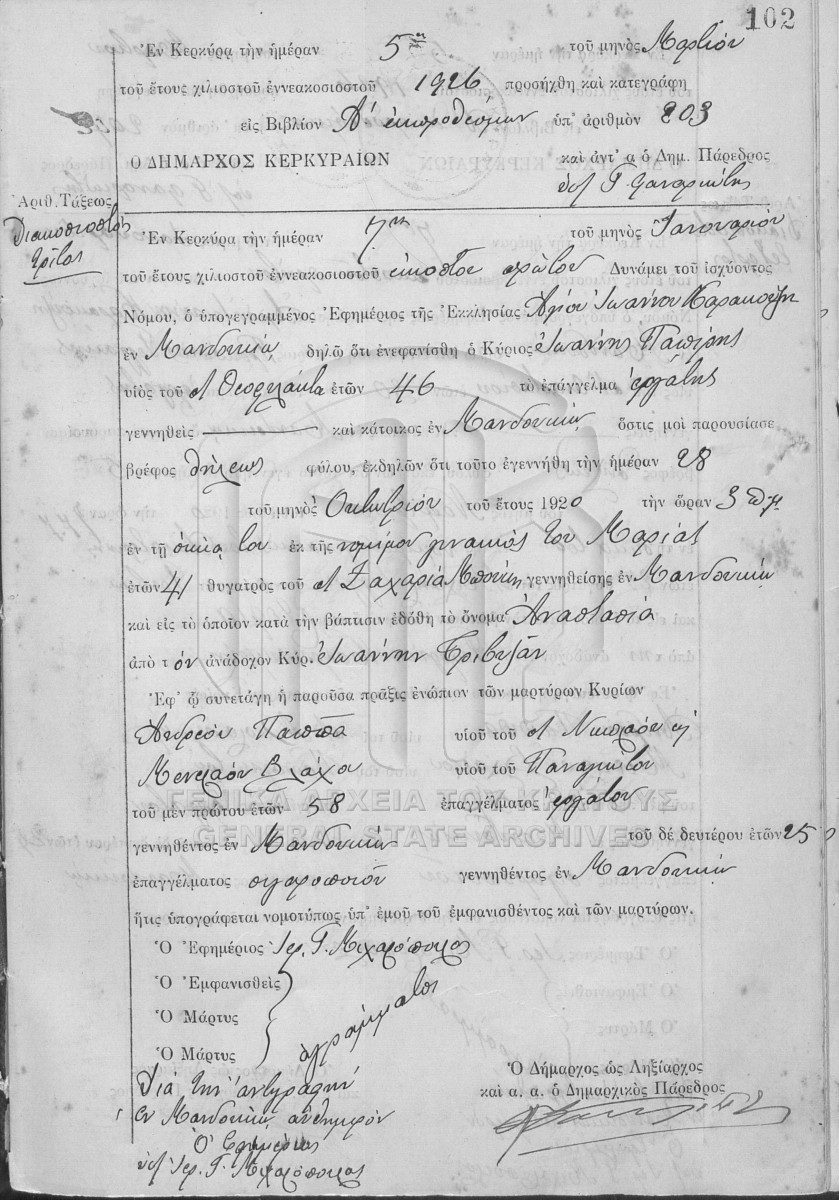 102
Ἐν Κερκύρᾳ τὴν ἡμέραν 5ην τοῦ μηνὸς Μαρτίου
τοῦ ἔτους χιλιοστοῦ ἐννεακοσιοστοῦ 1926 προσήχθη καὶ κατεγράφη
εἰς Βιβλίον Α' ἐκπροθέσμων ὑπ' ἀριθμὸν 203
Ο ΔΗΜΑΡΧΟΣ ΚΕΡΚΥΡΑΙΩΝ καὶ ἀντ' α ὁ Δημ. Πάρεδρος
Ἀριθ. Τάξεως
Διακοσιοστὸς
τρίτος
Ἐν Κερκύρᾳ τὴν ἡμέραν 7ην τοῦ μηνὸς Ἰανουαρίου
τοῦ ἔτους χιλιοστοῦ ἐννεακοσιοστοῦ εἰκοστοῦ πρώτου Δυνάμει τοῦ ἰσχύοντος
Νόμου, ὁ ὑπογεγραμμένος Ἐφημέριος τῆς Ἐκκλησίας Ἁγίου Ἰωάννου
ἐν Μανδουκίῳ δηλῶ ὅτι ἐνεφανίσθη ὁ Κύριος Ἰωάννης
υἱὸς τοῦ Θεοφιλάκτου ἐτῶν 46 τὸ ἐπάγγελμα ἐργάτης
γεννηθεὶς — καὶ κάτοικος ἐν Μανδουκίῳ ὅστις μοὶ παρουσίασε
βρέφος θήλεως φύλου, ἐκδηλῶν ὅτι τοῦτο ἐγεννήθη τὴν ἡμέραν 28
τοῦ μηνὸς Ὀκτωβρίου τοῦ ἔτους 1920 τὴν ὥραν 3 π.μ.
ἐν τῇ οἰκίᾳ του ἐκ τῆς νομίμου γυναικός του Μαρίας
ἐτῶν 41 θυγατρὸς τοῦ Ζαχαρία γεννηθείσης ἐν Μανδουκίῳ
καὶ εἰς τὸ ὁποῖον κατὰ τὴν βάπτισιν ἐδόθη τὸ ὄνομα Ἀναστασία
ἀπὸ τὸν ἀνάδοχον Κύρ. Ἰωάννην Τριβυζᾶν
Ἐφ' ᾧ συνετάγη ἡ παροῦσα πρᾶξις ἐνώπιον τῶν μαρτύρων Κυρίων
Ἀνδρέου Παππᾶ υἱοῦ τοῦ Νικολάου
Μενελάου Βλάχου υἱοῦ τοῦ Παναγιώτου
τοῦ μὲν πρώτου ἐτῶν 58 ἐπαγγέλματος ἐργάτου
ΓΕΝΙΚΑ ΑΡΧΕΙΑ ΤΟΥ ΚΡΑΤΟΥΣ
GENERAL STATE ARCHIVES
γεννηθέντος ἐν Μανδουκίῳ τοῦ δέ δευτέρου ἐτῶν 25
ἐπαγγέλματος σιγαροποιοῦ γεννηθέντος ἐν Μανδουκίῳ
ἥτις ὑπογράφεται νομοτύπως ὑπ' ἐμοῦ τοῦ ἐμφανισθέντος καὶ τῶν μαρτύρων.
Ὁ Ἐφημέριος Ἱερ. Γ. Μιχαλόπουλος
Ὁ Ἐμφανισθεὶς
Ὁ Μάρτυς
Ὁ Μάρτυς
ἀγράμματοι
Διὰ τὴν ἀντιγραφήν
Ἐν Μανδουκίῳ αὐθημερόν
Ὁ Ἐφημέριος
Ἱερ. Γ. Μιχαλόπουλος
Ὁ Δήμαρχος ὡς Ληξίαρχος
καὶ α. α. ὁ Δημαρχικὸς Πάρεδρος